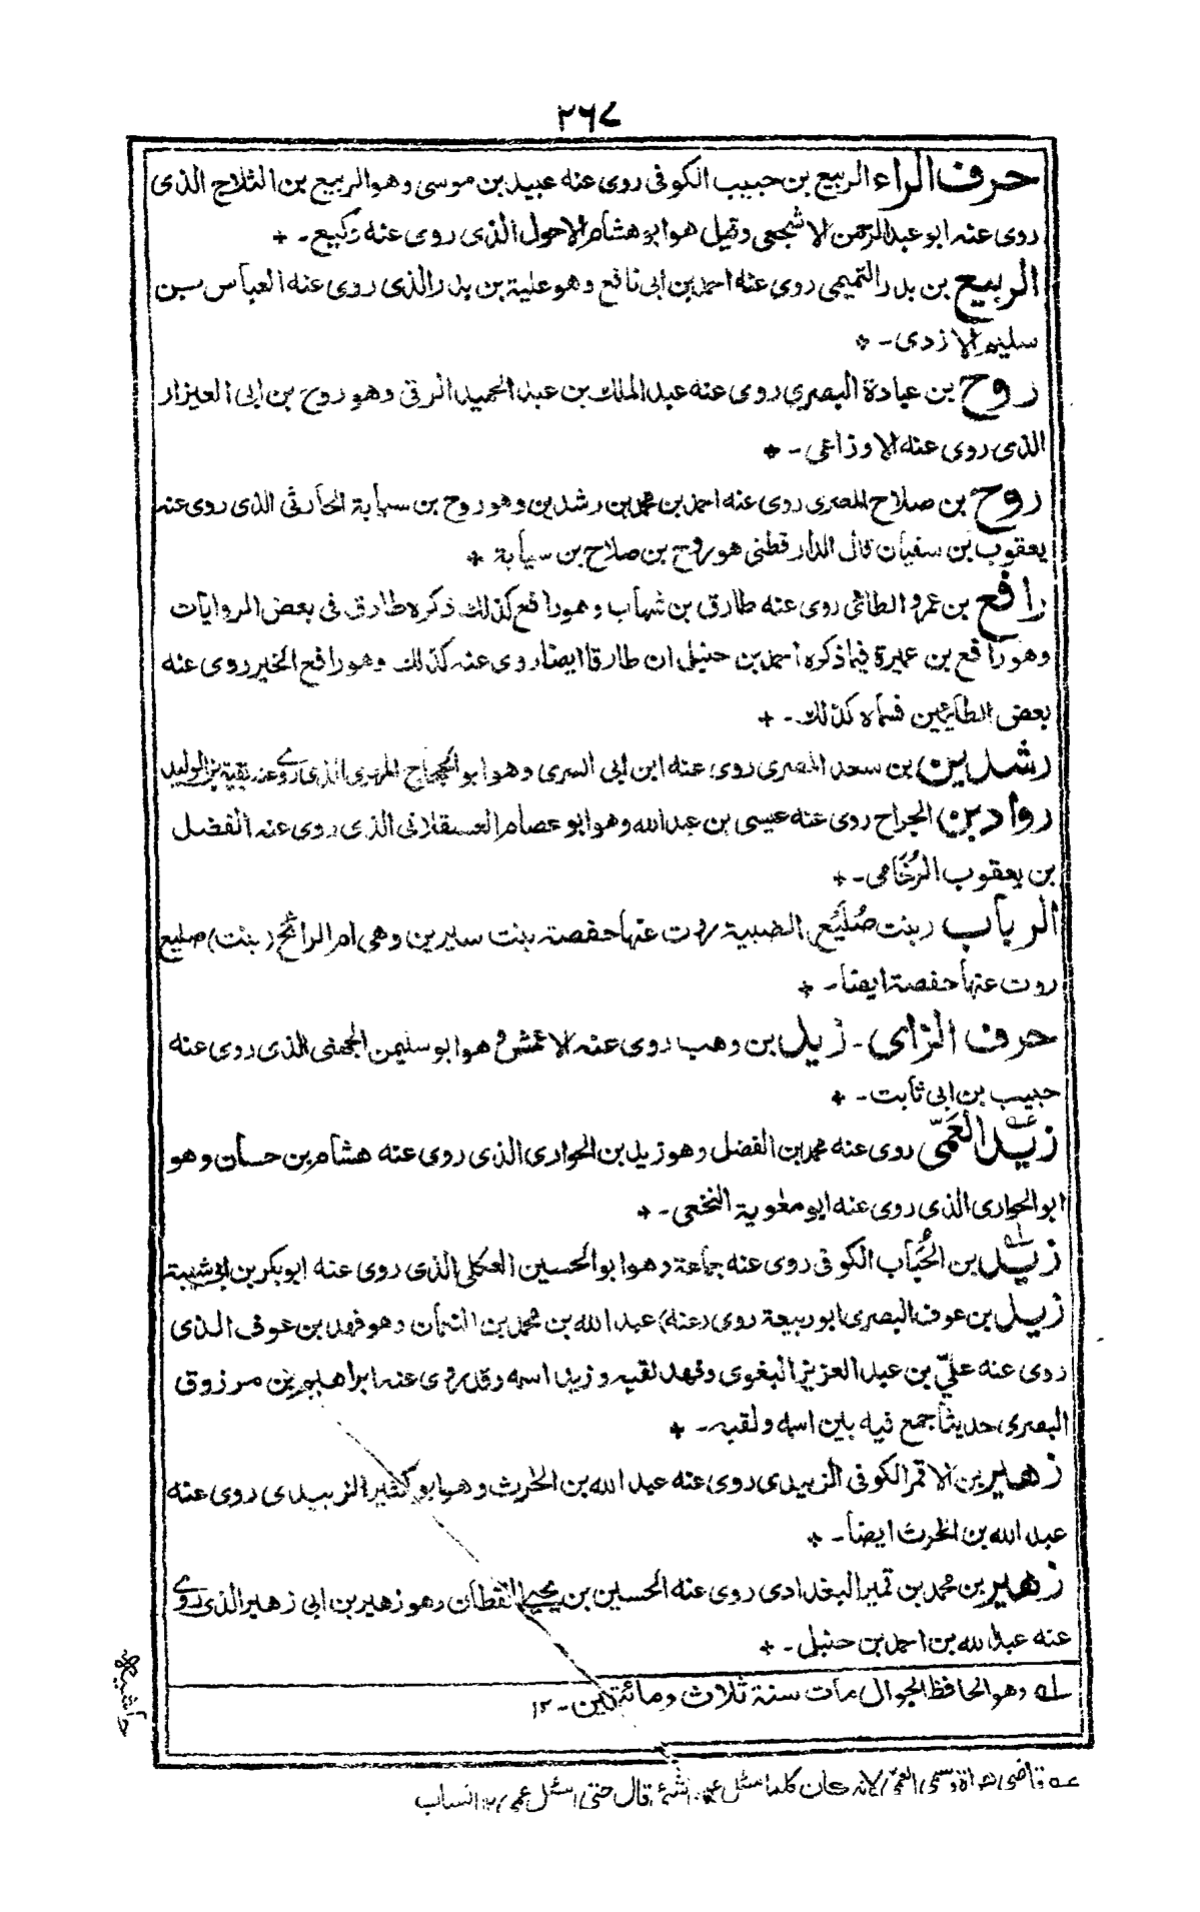 ٢٦٧
حرف الراء الربيع بن حبيب الكوفى روى عنه عبيد بن موسى وهو الربيع بن الثلاج الذى
روى عنه ابو عبد الرحمن الاشجعى وقيل هو ابو هشام الاحول الذى روى عنه وكيع ـ +
الربيع بن بدر التميمى روى عنه احمد بن ابى نافع وهو علية بن بدر الذى روى عنه العباس بن
سليم الازدى ـ +
روح بن عبادة البصرى روى عنه عبد الملك بن عبد الحميد الرقى وهو روح بن ابى العيزار
الذى روى عنه الاوزاعى ـ +
روح بن صلاح المصرى روى عنه احمد بن محمد بن رشدين وهو روح بن سيابة الحارثى الذى روى عنه
يعقوب بن سفيان قال الدارقطنى هو روح بن صلاح بن سيابة +
رافع بن عمرو الطائى روى عنه طارق بن شهاب وهو رافع كذلك ذكره طارق فى بعض الروايات
وهو رافع بن عميرة فيما ذكره احمد بن حنبل ان طارقا ايضا روى عنه كذلك وهو رافع الخير روى عنه
بعض الطائيين فسماه كذلك ـ +
رشدين بن سعد المصرى روى عنه ابن ابى السرى وهو ابو الحجاج المهرى الذى روى عنه بقية بن الوليد
رواد بن الجراح روى عنه عيسى بن عبد الله وهو ابو عصام العسقلانى الذى روى عنه الفضل
بن يعقوب الرُّخَامى ـ +
الرباب (بنت صُلَيْع) الضبية روت عنها حفصة بنت سيرين وهى ام الرائح (بنت) صليع
روت عنها حفصة ايضا ـ +
حرف الزاى ـ زيد بن وهب روى عنه الاعمش وهو ابو سليمن الجهنى الذى روى عنه
حبيب بن ابى ثابت ـ +
زيد العَمِّى روى عنه محمد بن الفضل وهو زيد بن الحوارى الذى روى عنه هشام بن حسان وهو
ابو الحوارى الذى روى عنه ابو معوية النخعى ـ +
زيد بن الحُبَاب الكوفى روى عنه جماعة وهو ابو الحسين العكلى الذى روى عنه ابو بكر بن ابى شيبة
زيد بن عوف البصرى ابو ربيعة روى (عنه) عبد الله بن محمد بن النعمان وهو فهد بن عوف الذى
روى عنه علىّ بن عبد العزيز البغوى وفهد لقبه وزيد اسمه وقد روى عنه ابراهيم بن مرزوق
البصرى حديثا جمع فيه بين اسمه ولقبه ـ +
زهير بن الاقمر الكوفى الزبيدى روى عنه عبد الله بن الحرث وهو ابو كثير الزبيدى روى عنه
عبد الله بن الحرث ايضا ـ +
زهير بن محمد بن قمير البغدادى روى عنه الحسين بن يحيى القطان وهو زهير بن ابى زهير الذى روى
عنه عبد الله بن احمد بن حنبل ـ +
له وهو الحافظ الجوال مات سنة ثلاث ومائتين ـ ١٢
حاشيه
عه قاضى هراة وسمى العمى لانه كان كلما سئل عن شئ قال حتى اسئل عمى ١٢ انساب